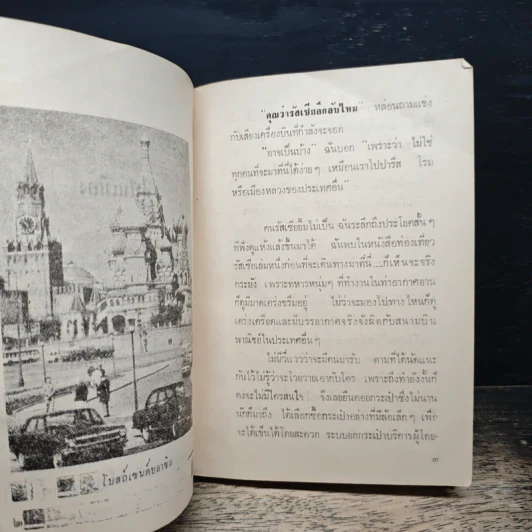 โบสถ์เซนต์บาซิล
๒
"คุณว่ารัสเซียลึกลับไหม" หล่อนถามแข่ง
กับเสียงเครื่องบินที่กำลังจะจอด
"อาจเป็นบ้าง" ฉันบอก "เพราะว่า ไม่ใช่
ทุกคนที่จะมาที่นี่ได้ง่าย ๆ เหมือนเราไปปารีส โรม
หรือเมืองหลวงของประเทศอื่น"
คนรัสเซียยิ้มไม่เป็น ฉันระลึกถึงประโยคสั้น ๆ
ที่พึ่งผุดขึ้นมาได้ ฉันพบในหนังสือท่องเที่ยว
รัสเซียเล่มหนึ่งก่อนที่จะเดินทางมาที่นี่....ก็เห็นจะจริง
กระมัง เพราะทหารหนุ่ม ๆ ที่ทำงานในท่าอากาศยาน
ก็ดูมีมาดเคร่งขรึมอยู่ ไม่ว่าจะมองไปทางไหนก็ดู
เคร่งเครียดและมีบรรยากาศจริงจังผิดกับสนามบิน
พาณิชย์ในประเทศอื่น ๆ
ไม่มีวี่แววว่าจะมีคนมารับ ตามที่ได้นัดแนะ
กันไว้ไม่รู้ว่าจะโวยวายเอากับใคร เพราะถึงทำยังงั้นก็
คงจะไม่มีใครสนใจ จึงเลยยืนคอยกระเป๋าซึ่งไม่นาน
นักก็มาถึง ได้เลือกซื้อกระเป๋าอย่างที่มีล้อเล็ก ๆ เพื่อ
จะได้เข็นได้โดยสะดวก ระบบยกกระเป๋าบริการผู้โดย-